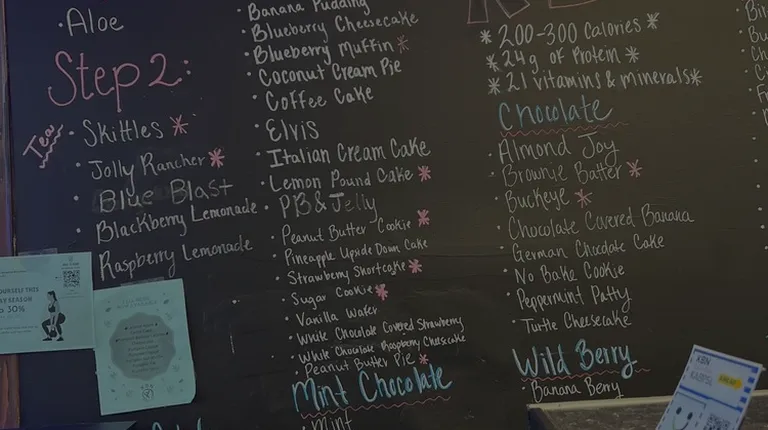 · Aloe
Step 2:
Tea
· Skittles *
· Jolly Rancher *
· Blue Blast
· Blackberry Lemonade
· Raspberry Lemonade
· Banana Pudding
· Blueberry Cheesecake
· Blueberry Muffin *
· Coconut Cream Pie
· Coffee Cake
· Elvis
· Italian Cream Cake
· Lemon Pound Cake *
· PB & Jelly
· Peanut Butter Cookie *
· Pineapple Upside Down Cake
· Strawberry Shortcake *
· Sugar Cookie *
· Vanilla Wafer
· White Chocolate Covered Strawberry
· White Chocolate Raspberry Cheesecake
· Peanut Butter Pie *
Mint Chocolate
· Mint
* 200-300 Calories *
* 24g of Protein *
* 21 vitamins & minerals *
Chocolate
· Almond Joy
· Brownie Batter *
· Buckeye *
· Chocolate Covered Banana
· German Chocolate Cake
· No Bake Cookie
· Peppermint Patty
· Turtle Cheesecake
Wild Berry
· Banana Berry